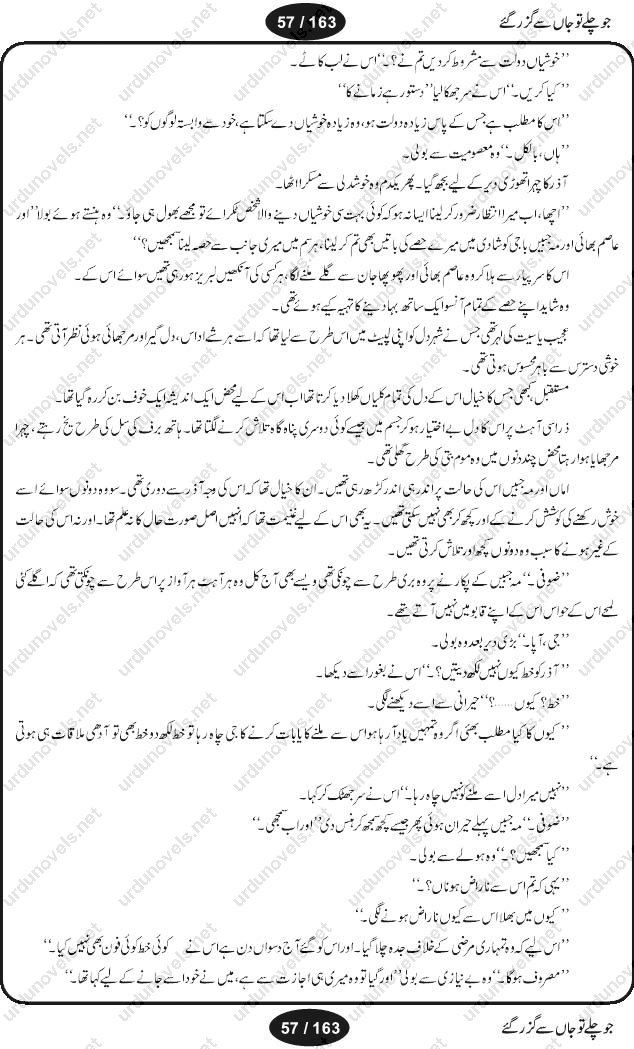 جو چلے تو جاں سے گزر گئے
57 / 163
’’خوشیاں دولت سے مشروط کر دیں تم نے؟‘‘ اس نے لب کاٹے۔
’’کیا کریں۔‘‘ اس نے سر جھکا لیا ’’دستور ہے زمانے کا‘‘
’’اس کا مطلب ہے جس کے پاس زیادہ دولت ہو، وہ زیادہ خوشیاں دے سکتا ہے، خود سے وابستہ لوگوں کو؟۔‘‘
’’ہاں، بالکل۔‘‘ وہ معصومیت سے بولی۔
آذر کا چہرا تھوڑی دیر کے لیے بجھ گیا۔ پھر یکدم وہ خوشدلی سے مسکرا اٹھا۔
’’اچھا، اب میرا انتظار ضرور کر لینا ایسا نہ ہو کہ کوئی بہت سی خوشیاں دینے والا شخص ٹکرائے تو مجھے بھول ہی جاؤ۔‘‘ وہ ہنستے ہوئے بولا ’’اور
عاصم بھائی اور مہ جبیں باجی کو شادی میں میرے حصے کی باتیں بھی تم کر لینا، ہر رسم میں میری جانب سے حصہ لینا سمجھیں؟‘‘
اس کا سر پیار سے ہلا کر وہ عاصم بھائی اور پھوپھا جان سے گلے ملنے لگا، ہر کسی کی آنکھیں لبریز ہو رہی تھیں سوائے اس کے۔
وہ شاید اپنے حصے کے تمام آنسو ایک ساتھ بہا دینے کا تہیہ کیے ہوئے تھی۔
عجیب یاسیت کی لہر تھی جس نے شہرِ دل کو اپنی لپیٹ میں اس طرح سے لیا تھا کہ اسے ہر شے اداس، دل گیر اور مرجھائی ہوئی نظر آتی تھی۔ ہر
خوشی دسترس سے باہر محسوس ہوتی تھی۔
مستقبل، کبھی جس کا خیال اس کے دل کی تمام کلیاں کھلا دیا کرتا تھا اب اس کے لیے محض ایک اندیشہ ایک خوف بن کر رہ گیا تھا۔
ذرا سی آہٹ پر اس کا دل بے اختیار ہو کر جسم میں جیسے کوئی دوسری پناہ گاہ تلاش کرنے لگتا تھا۔ ہاتھ برف کی سل کی طرح یخ رہتے، چہرا
مرجھایا ہوا رہتا محض چند دنوں میں وہ موم بتی کی طرح گھلی تھی۔
اماں اور مہ جبیں اس کی حالت پر اندر ہی اندر کڑھ رہی تھیں۔ ان کا خیال تھا کہ اس کی وجہ آذر سے دوری تھی۔ سو وہ دونوں سوائے اسے
خوش رکھنے کی کوشش کرنے کے اور کچھ کر بھی نہیں سکتی تھیں۔ یہ بھی اس کے لیے غنیمت تھا کہ انہیں اصل صورت حال کا نہ علم تھا۔ اور نہ اس کی حالت
کے غیر ہونے کا سبب وہ دونوں کچھ اور تلاش کرتی تھیں۔
’’ضوفی۔‘‘ مہ جبیں کے پکارنے پر وہ بری طرح سے چونکی تھی ویسے بھی آج کل وہ ہر آہٹ ہر آواز پر اس طرح سے چونکتی تھی کہ اگلے کئی
لمحے اس کے حواس اس کے اپنے قابو میں نہیں آتے تھے۔
’’جی، آپا۔‘‘ بڑی دیر بعد وہ بولی۔
’’آذر کو خط کیوں نہیں لکھ دیتیں؟۔‘‘ اس نے بغور اسے دیکھا۔
’’خط؟ کیوں......؟‘‘ حیرانی سے اسے دیکھنے لگی۔
’’کیوں کا کیا مطلب بھئی اگر وہ تمہیں یاد آ رہا ہو اس سے ملنے کا یا بات کرنے کا جی چاہ رہا تو خط لکھ دو خط بھی تو آدھی ملاقات ہی ہوتی
ہے۔‘‘
’’نہیں میرا دل اسے ملنے کو نہیں چاہ رہا۔‘‘ اس نے سر جھٹک کر کہا۔
’’ضوفی۔‘‘ مہ جبیں پہلے حیران ہوئی پھر جیسے کچھ سمجھ کر ہنس دی ’’اور اب سمجھی۔‘‘
’’کیا سمجھیں؟۔‘‘ وہ ہولے سے بولی۔
’’یہی کہ تم اس سے ناراض ہو ناں؟۔‘‘
’’کیوں میں بھلا اس سے کیوں ناراض ہونے لگی۔‘‘
’’اس لیے کہ وہ تمہاری مرضی کے خلاف جدہ چلا گیا۔ اور اس کو گئے آج دسواں دن ہے اس نے کوئی خط کوئی فون بھی نہیں کیا۔‘‘
’’مصروف ہوگا۔‘‘ وہ بے نیازی سے بولی ’’اور گیا تو وہ میری ہی اجازت سے ہے، میں نے خود اسے جانے کے لیے کہا تھا۔‘‘
جو چلے تو جاں سے گزر گئے
57 / 163
urdunovels.net